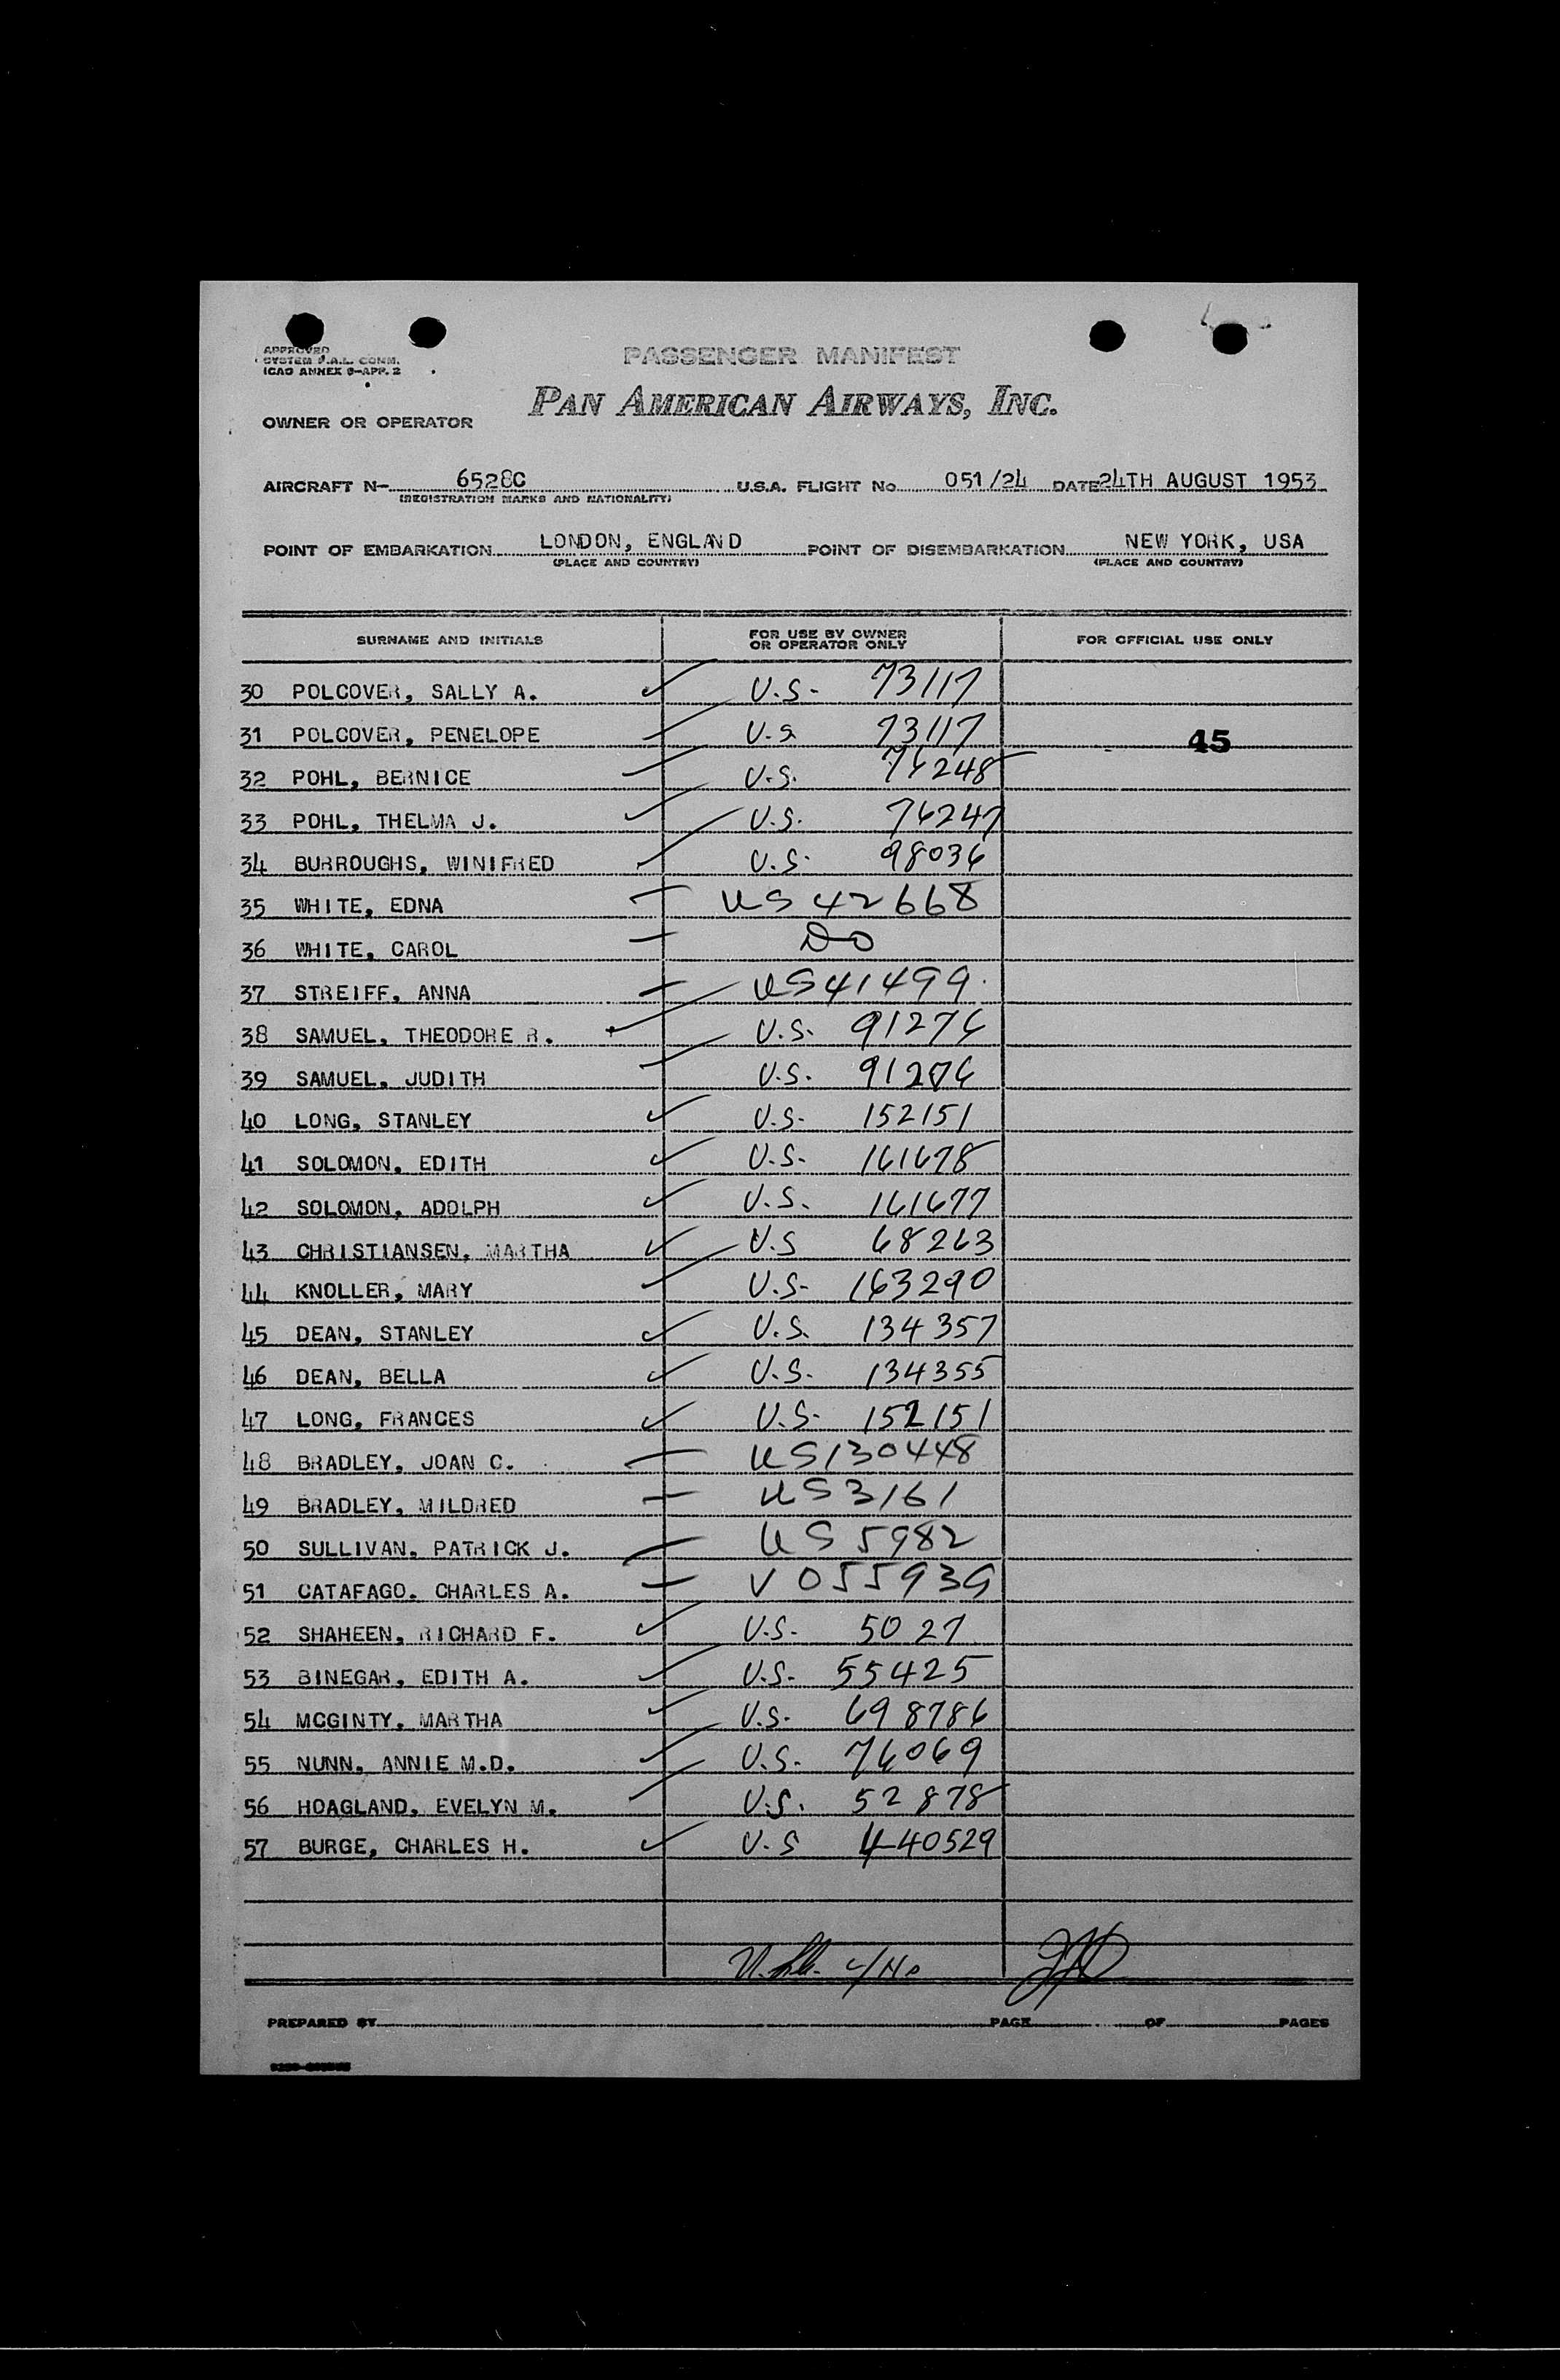 APPROVED
SYSTEM P.A.L. COMM.
ICAO ANNEX 9-APP. 2
PASSENGER MANIFEST
PAN AMERICAN AIRWAYS, INC.
OWNER OR OPERATOR
AIRCRAFT N- 6528C U.S.A. FLIGHT No 051/24 DATE 24TH AUGUST 1953
(REGISTRATION MARKS AND NATIONALITY)
POINT OF EMBARKATION LONDON, ENGLAND POINT OF DISEMBARKATION NEW YORK, USA
(PLACE AND COUNTRY) (PLACE AND COUNTRY)
SURNAME AND INITIALS FOR USE BY OWNER OR OPERATOR ONLY FOR OFFICIAL USE ONLY
30 POLCOVER, SALLY A. U.S. 73117
31 POLCOVER, PENELOPE U.S. 73117 45
32 POHL, BERNICE U.S. 76248
33 POHL, THELMA J. U.S. 76247
34 BURROUGHS, WINIFRED U.S. 98036
35 WHITE, EDNA US 42668
36 WHITE, CAROL DO
37 STREIFF, ANNA US 41499.
38 SAMUEL, THEODORE R. U.S. 91276
39 SAMUEL, JUDITH U.S. 91276
40 LONG, STANLEY U.S. 152151
41 SOLOMON, EDITH U.S. 161678
42 SOLOMON, ADOLPH U.S. 161677
43 CHRISTIANSEN, MARTHA U.S 68263
44 KNOLLER, MARY U.S. 163290
45 DEAN, STANLEY U.S. 134357
46 DEAN, BELLA U.S. 134355
47 LONG, FRANCES U.S. 152151
48 BRADLEY, JOAN C. US 130448
49 BRADLEY, MILDRED US 3161
50 SULLIVAN, PATRICK J. US 5982
51 CATAFAGO. CHARLES A. V 055939
52 SHAHEEN, RICHARD F. U.S. 5027
53 BINEGAR, EDITH A. U.S. 55425
54 MCGINTY, MARTHA U.S. 698786
55 NUNN, ANNIE M.D. U.S. 76069
56 HOAGLAND, EVELYN M. U.S. 52878
57 BURGE, CHARLES H. U.S 440529
PREPARED BY PAGE OF PAGES